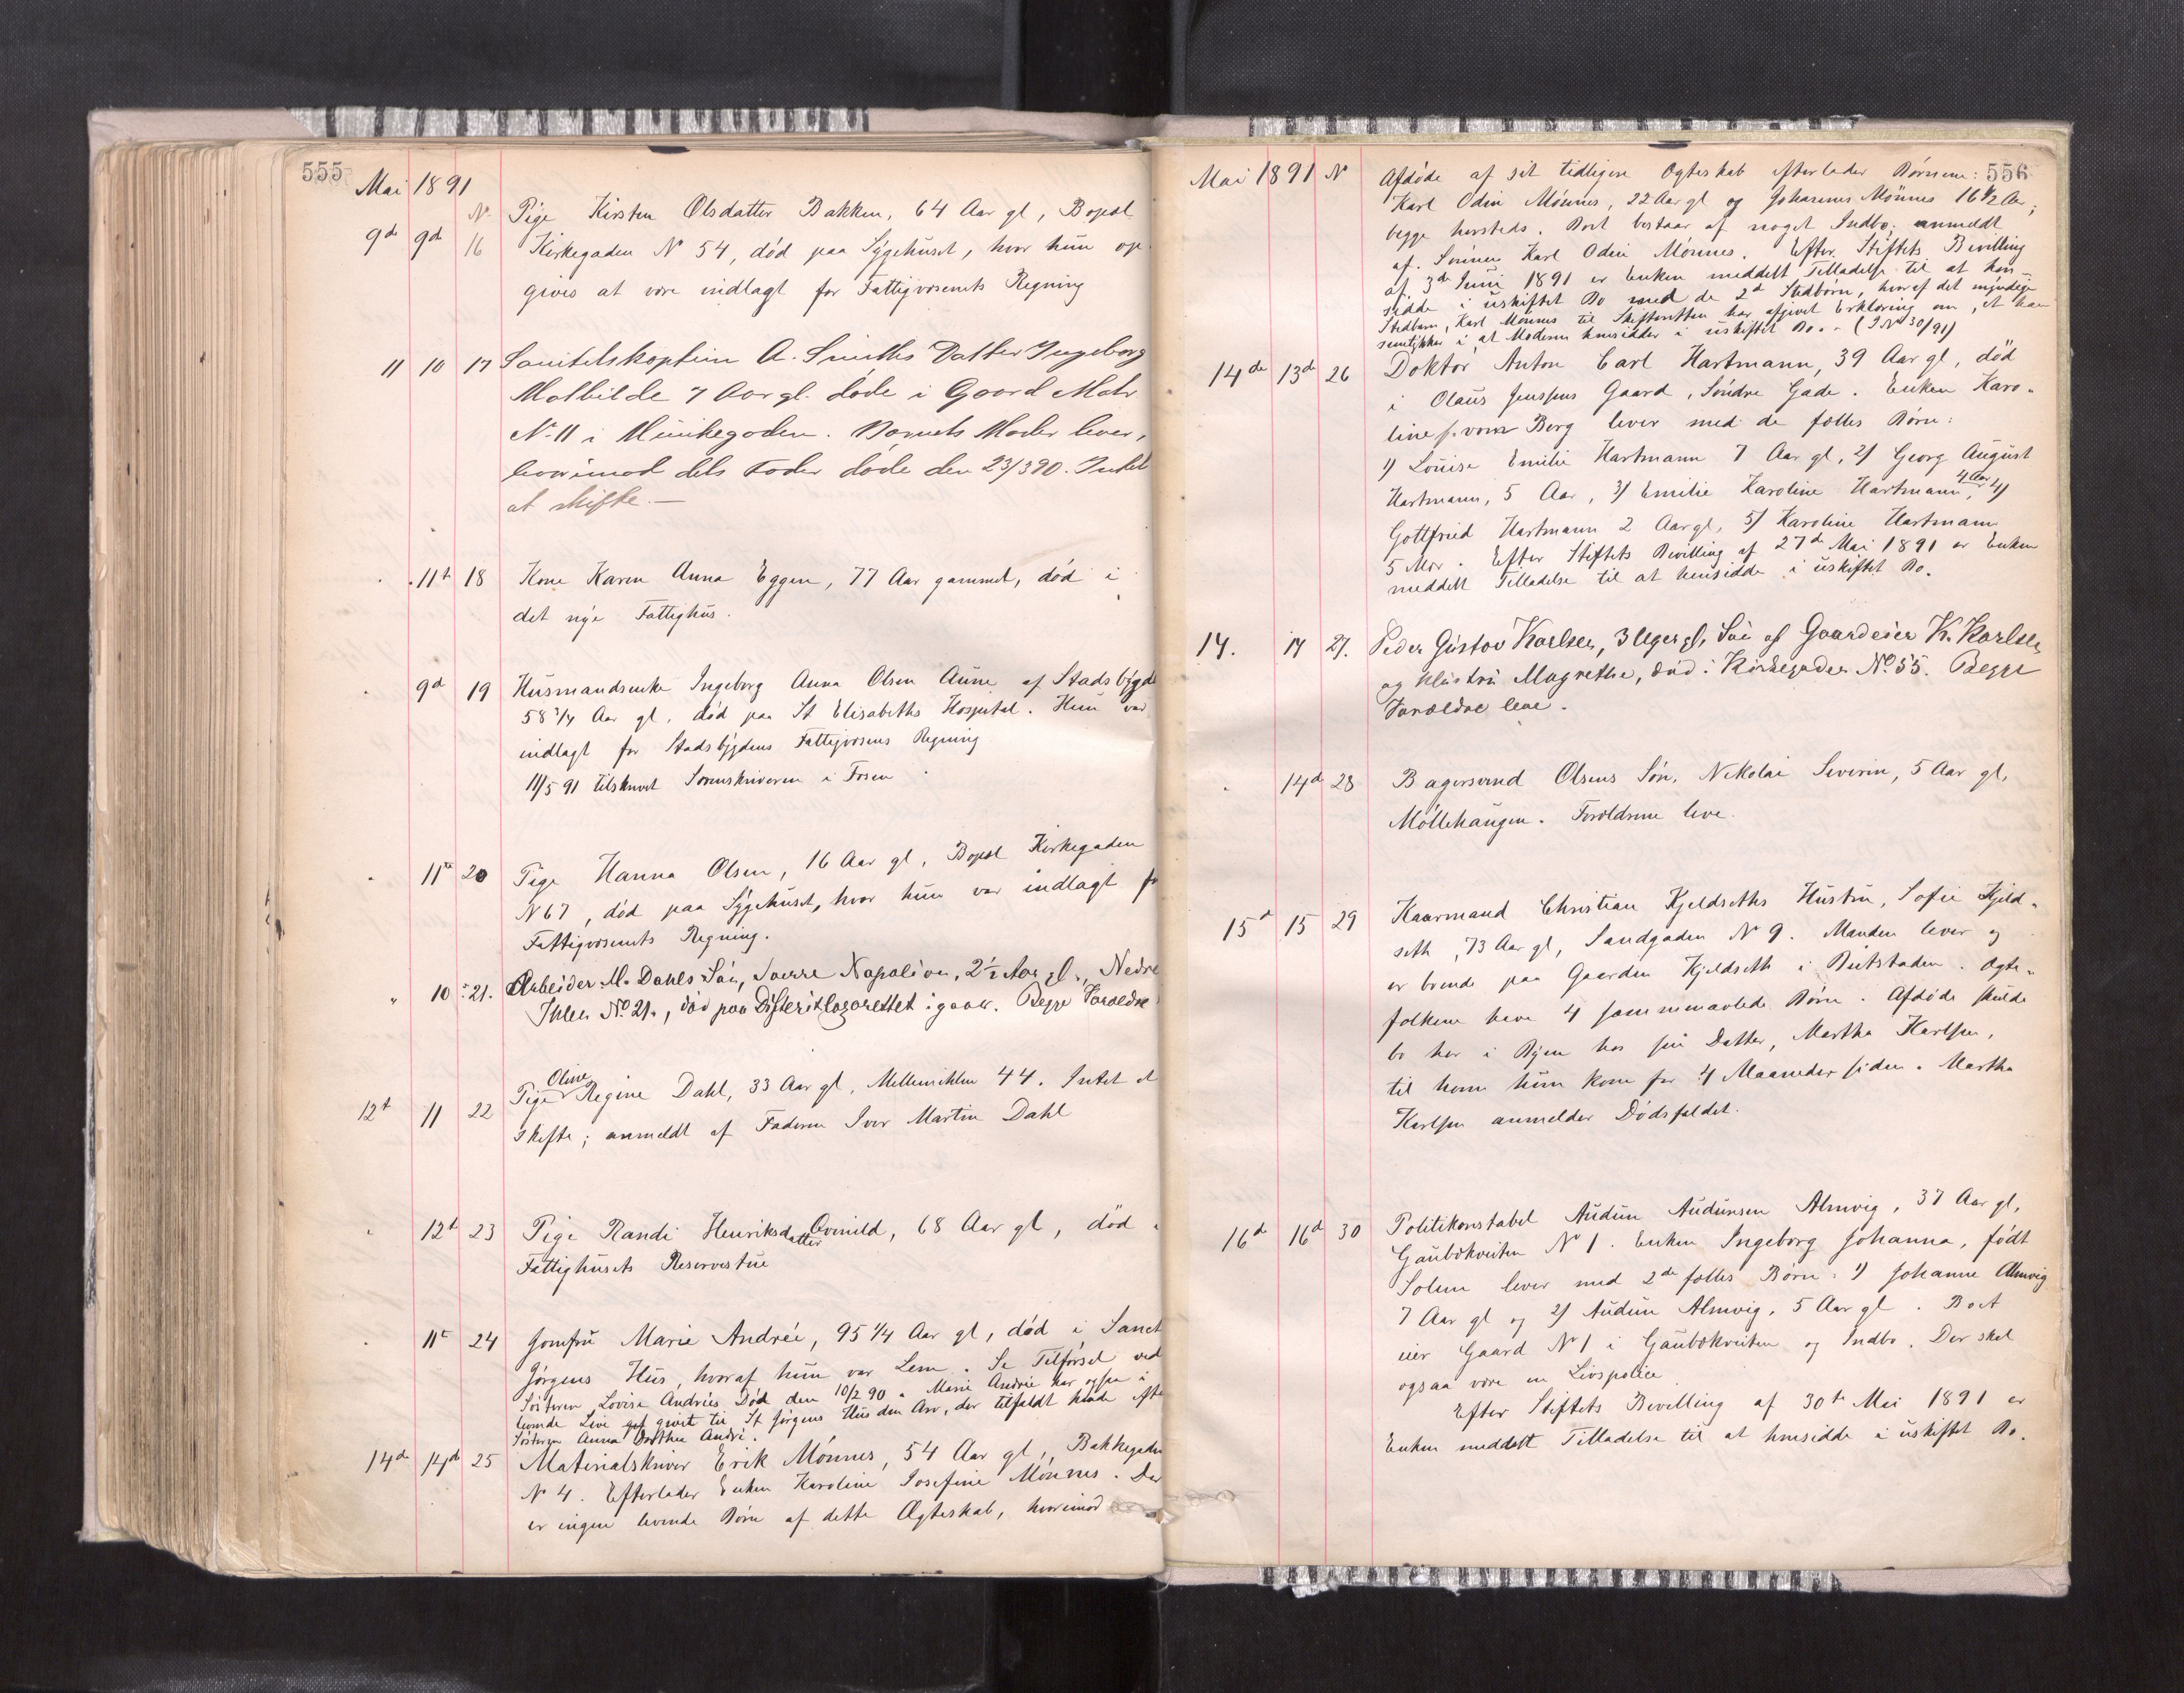 555
Mai 1891
N.
9de 9de 16 Pige Kirsten Olsdatter Bakken, 64 Aar gl, Bopæl
Kirkegaden No 54, död paa Sygehuset, hvor hun op
gives at være indlagt for Fattigvæsenets Regning
11 10 17 Sanitetskaptein A. Smiths Datter Ingeborg
Mathilde 7 Aar gl. døde i Gaard Matr
No 11 i Munkegaden. Barnets Moder lever,
hvorimod dets Fader døde den 23/3 90. Intet
at skifte. —
11t 18 Kone Karen Anna Eggen, 77 Aar gammel, död i
det nye Fattighus.
9d 19 Husmandsenke Ingeborg Anna Olsen Aune af Stadsbygd
58 3/4 Aar gl, död paa St Elisabeths Hospital. Hun var
indlagt for Stadsbygdens Fattigvæsens Regning
11/5 91 tilskrevet Sorenskriveren i Fosen
11te 20 Pige Hanna Olsen, 16 Aar gl, Bopæl Kirkegaden
N 67, död paa Sygehuset, hvor hun var indlagt for
Fattigvæsenets Regning.
" 10 21. Arbeider M. Dahls Sön, Sverre Napoleon, 2 1/2 Aar gl., Nedre
Ihlen No 21., död paa Difteritlazarettet igaar. Begge Forældre
Oline
12t 11 22 Pige Regine Dahl, 33 Aar gl, Mellemihlen 44. Intet at
skifte; anmeldt af Faderen Iver Martin Dahl
12t 23 Pige Randi Henriksdatter Qvenild, 68 Aar gl, död i
Fattighusets Reservestue
11te 24 Jomfru Marie Andrée, 95 1/4 Aar gl, død i Sanct
Jörgens Hus, hvoraf hun var Lem. Se Tilförsel ved
Søsteren Lovise Andrées Död den 10/2 90. Marie Andrée har ogsaa i
levende Live givet til St Jörgens Hus den Arv, der tilfaldt hende efter
Søsteren Anna Dorthea André.
14de 14de 25 Materialskriver Erik Mönnes, 54 Aar gl, Bakkegaden
N 4. Efterlader Enken Karoline Josefine Mönnes. Der
er ingen levende Børn af dette Ægteskab, hvorimod
Mai 1891 N 556
Afdöde af sit tidligere Ægteskab efterlader Børnene:
Karl Odin Mönnes, 22 Aar gl og Johannes Mönnes 16 1/2 Aar,
begge hersteds. Boet bestaar af noget Indbo; anmeldt
af Sönnen Karl Odin Mönnes. Efter Stiftets Bevilling
af 3de Juni 1891 er Enken meddelt Tilladelse til at hen-
sidde i uskiftet Bo med de 2de Stedbörn, hvoraf det myndige
Stedbarn, Karl Mönnes til Skifteretten har afgivet Erklæring om, at han
samtykker i at Moderen hensidder i uskiftet Bo. - (J N 30/91)
14de 13de 26 Doktor Anton Carl Hartmann, 39 Aar gl, död
i Olaus Jenssens Gaard, Söndre Gade. Enken Karo-
line f. vom Berg lever med de fælles Børn:
1) Louise Emilie Hartmann 7 Aar gl, 2) Georg August
Hartmann, 5 Aar, 3) Emilie Karoline Hartmann, 4 Aar 4)
Gottfried Hartmann 2 Aar gl, 5) Karoline Hartmann
5 Mdr. Efter Stiftets Bevilling af 27de Mai 1891 er Enken
meddelt Tilladelse til at hensidde i uskiftet Bo.
14. 14 27. Peder Gustav Karlsen, 3 Uger gl, Sön af Gaardeier K. Karlsen
og Hustru Magrethe, död i Kirkegaden No 55. Begge
Forældre leve.
14d 28 Bagersvend Olsens Sön, Nikolai Severin, 5 Aar gl,
Möllehaugen. Forældrene leve.
15d 15 29 Kaarmand Christian Kjeldseths Hustru, Sofie Kjeld-
seth, 73 Aar gl, Sandgaden No 9. Manden lever og
er boende paa Gaarden Kjeldseth i Butstaden. Ægte-
folkene have 4 sammenavlede Børn. Afdöde skulde
bo her i Byen hos sin Datter, Martha Karlsen,
til hvem hun kom for 4 Maaneder siden. Martha
Karlsen anmelder Dödsfaldet.
16de 16de 30 Politikonstabel Audun Audunsen Almvig, 37 Aar gl,
Gaubækveiten No 1. Enken Ingeborg Johanna, født
Solem lever med 2de fælles Børn: 1) Johanne Almvig
7 Aar gl og 2) Audun Almvig, 5 Aar gl. Boet
eier Gaard No 1 i Gaubækveiten og Indbo. Der skal
ogsaa være en Livspolice
Efter Stiftets Bevilling af 30te Mai 1891 er
Enken meddelt Tilladelse til at hensidde i uskiftet Bo.